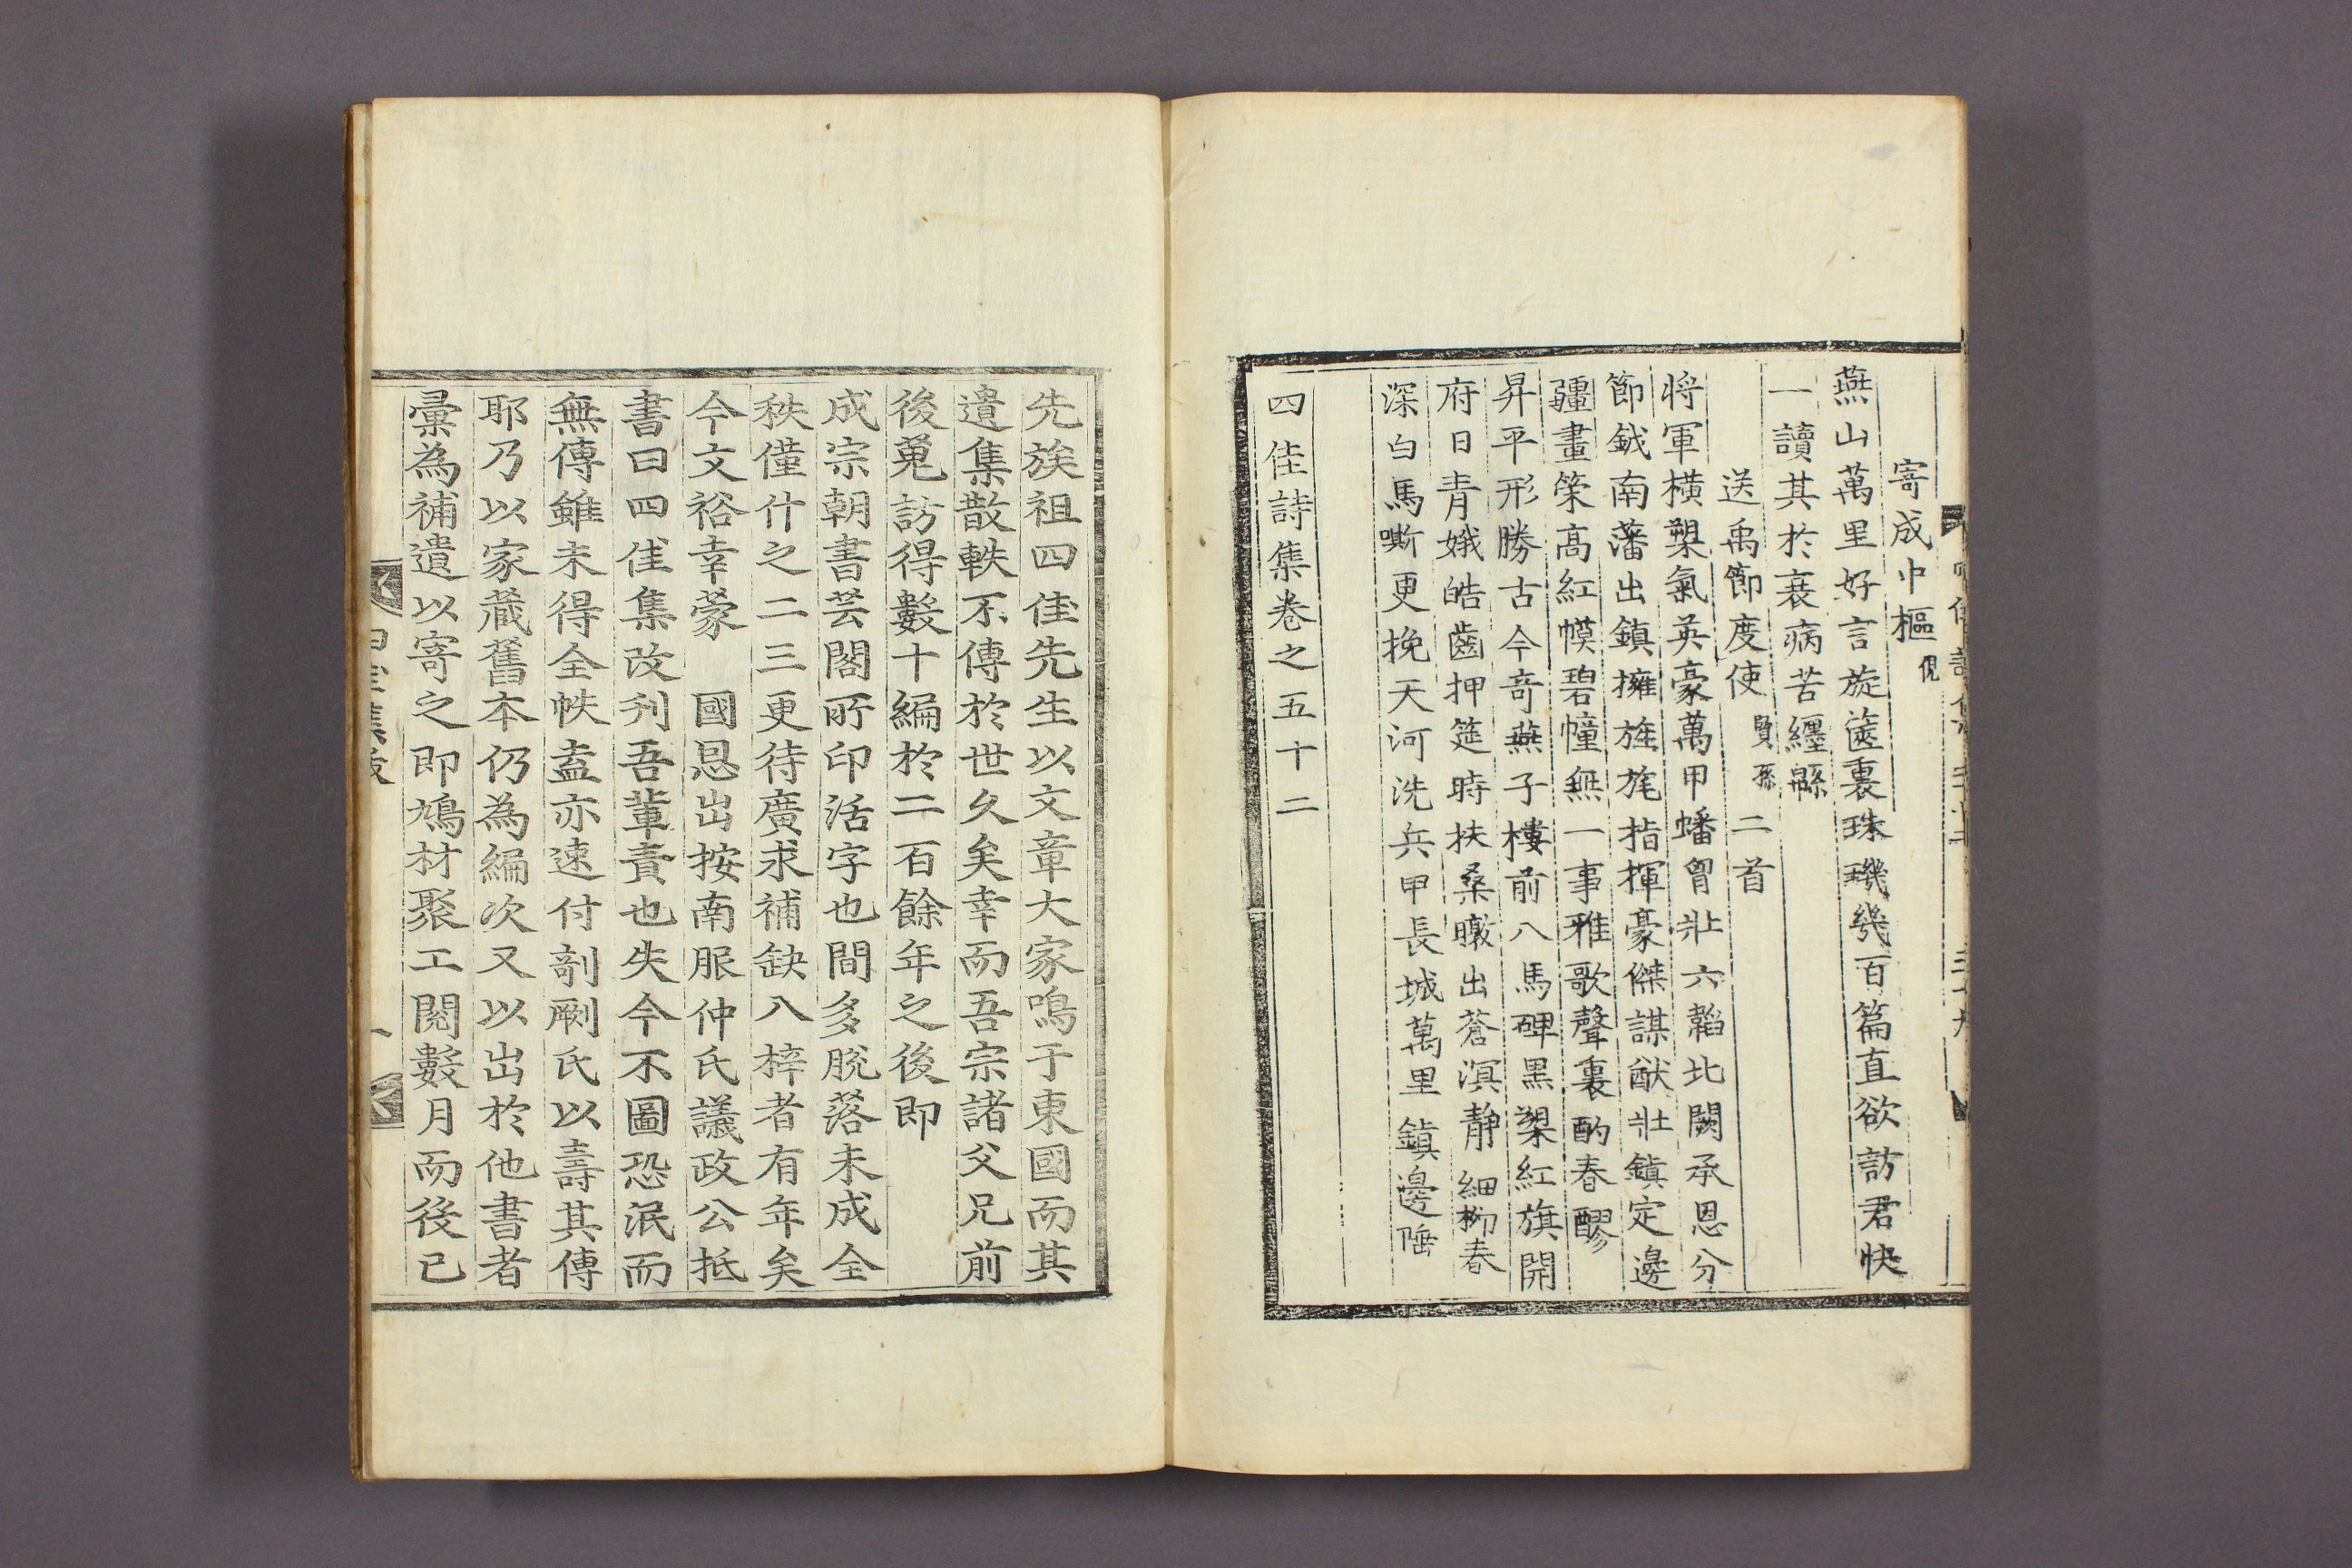 寄成中樞俔
燕山萬里好言旋篋裏珠璣幾百篇直欲訪君快
一讀其於衰病苦纒緜
送禹節度使賢孫二首
將軍橫槊氣英豪萬甲蟠胷壯六韜北闕承恩分
節鉞南藩出鎮擁旌旄指揮豪傑謀猷壯鎮定邊
疆畫策高紅幙碧幢無一事雅歌聲裏酌春醪
昇平形勝古今竒燕子樓前八馬碑黒槊紅旗開
府日青娥皓齒押筵時扶桑暾出蒼溟靜細柳春
深白馬嘶更挽天河洗兵甲長城萬里鎮邊陲
四佳詩集卷之五十二
先族祖四佳先生以文章大家鳴于東國而其
遺集散軼不傳於世久矣幸而吾宗諸父兄前
後蒐訪得數十編於二百餘年之後即
成宗朝書芸閣所印活字也間多脫落未成全
秩僅什之二三更待廣求補缺入梓者有年矣
今文裕幸蒙 國恩出按南服仲氏議政公抵
書曰四佳集改刋吾輩責也失今不圖恐泯而
無傳雖未得全帙盍亦速付剞劂氏以壽其傳
耶乃以家藏舊本仍為編次又以出於他書者
彙為補遺以寄之即鳩材聚工閱數月而後已